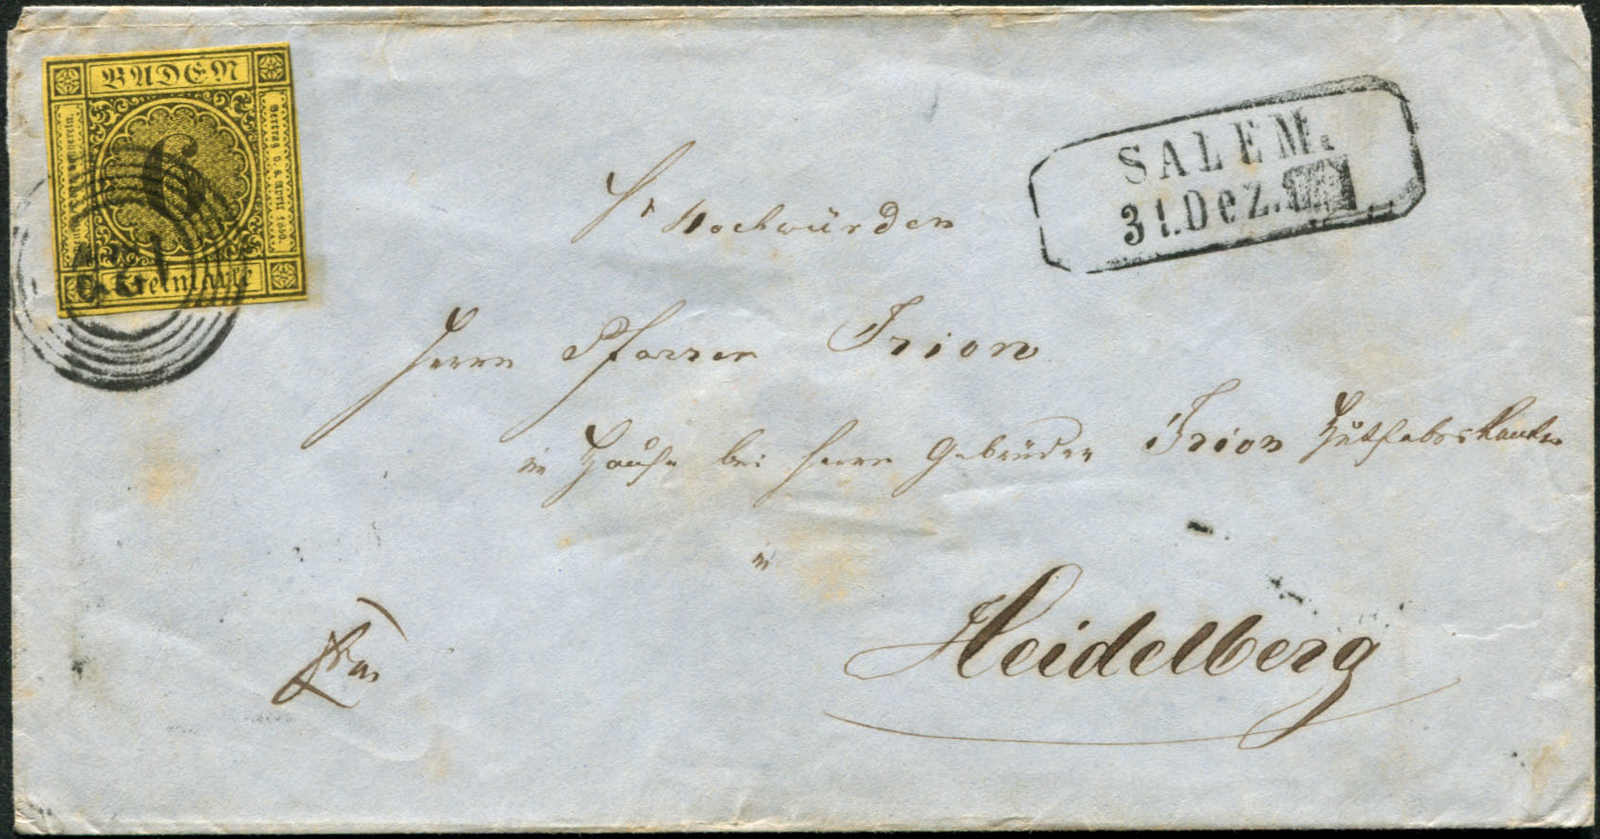 BADEN
6
Freimarke
SALEM.
31. Dez.
Sr Hochwürden
Herrn Pfarrer Trion
im Hause bei Herrn Gebrüder Trion
in
Heidelberg